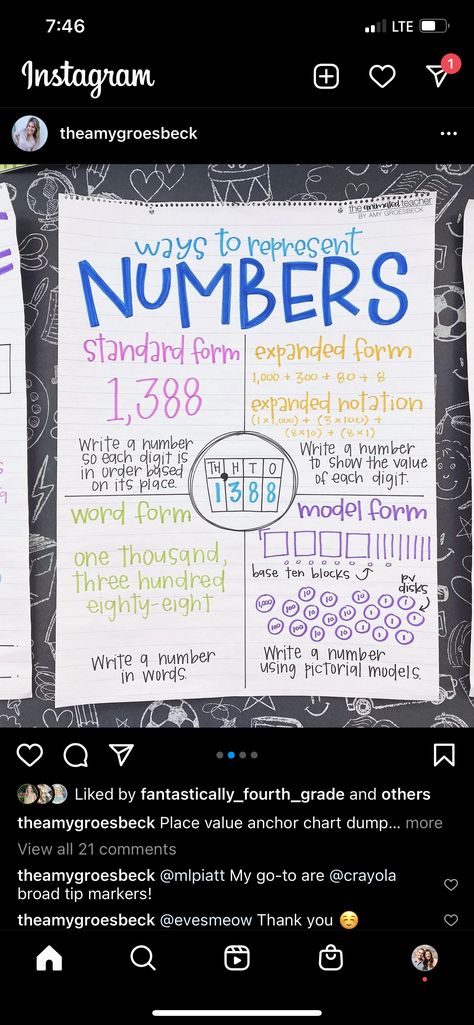 7:46
LTE
Instagram
1
theamygroesbeck
the animated teacher
BY AMY GROESBECK
ways to represent
NUMBERS
standard form
1,388
Write a number
so each digit is
in order based
on its place.
expanded form
1,000 + 300 + 80 + 8
expanded notation
(1 x 1,000) + (3 x 100) +
(8 x 10) + (8 x 1)
Write a number
to show the value
of each digit.
TH H T O
1 3 8 8
word form
one thousand,
three hundred
eighty-eight
Write a number
in words.
model form
base ten blocks
pv
disks
1,000 10 10 10 1 1
100 100 10 10 10 1 1 1
100 10 10 1 1 1
Write a number
using pictorial models.
Liked by fantastically_fourth_grade and others
theamygroesbeck Place value anchor chart dump... more
View all 21 comments
theamygroesbeck @mlpiatt My go-to are @crayola
broad tip markers!
theamygroesbeck @evesmeow Thank you ☺️